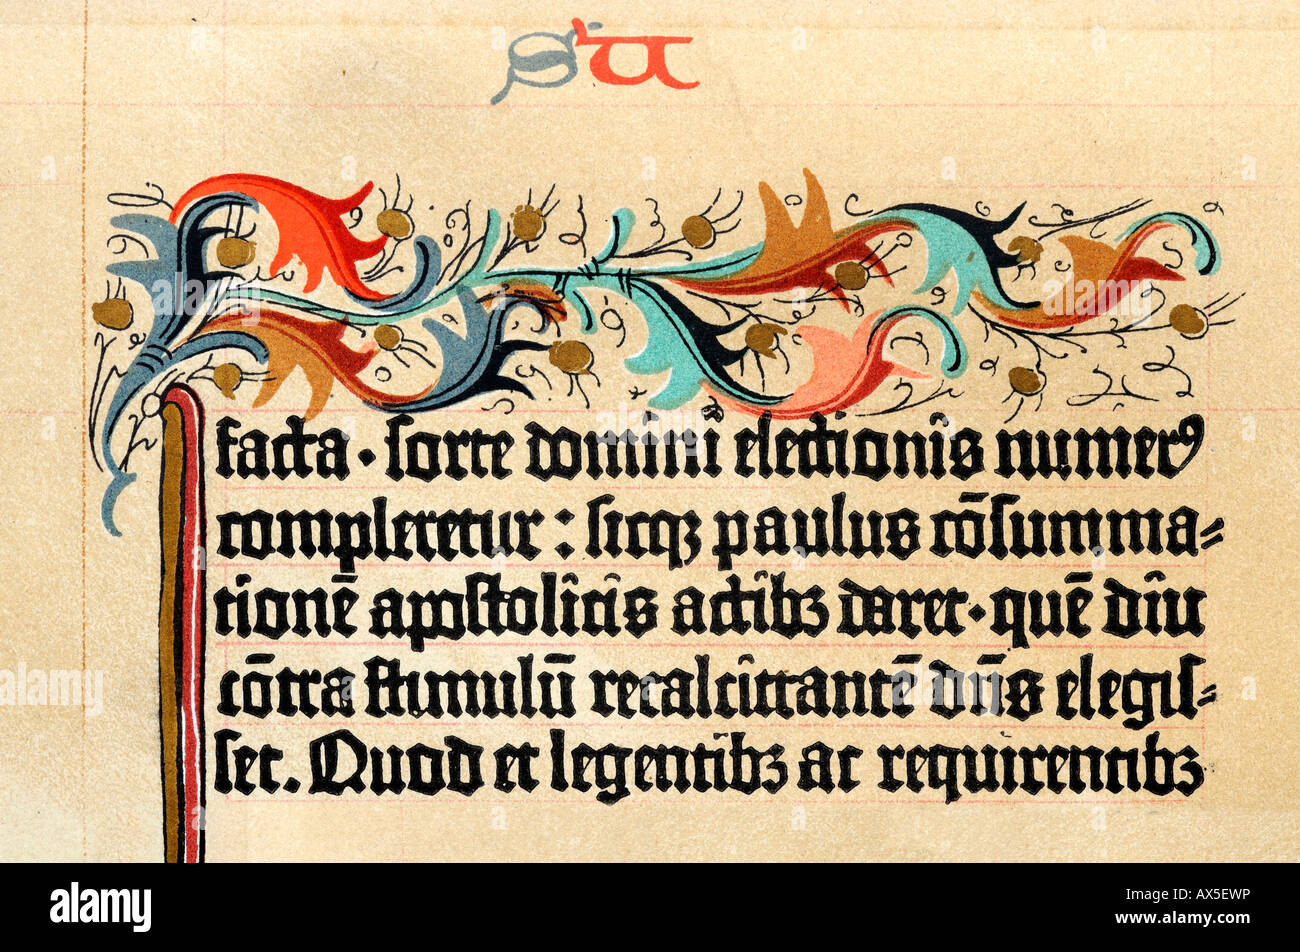 SA
facta · sorte domini electionis numerꝰ
compleretur : sicqꝫ paulus cōsumma-
tionē apostolicis actibꝫ daret · quē diu
cōtra stimulū recalcitrantē dn̄s elegis-
set. Quod et legentibꝫ ac requirentibꝫ
alamy
Image ID: AX5EWP
www.alamy.com